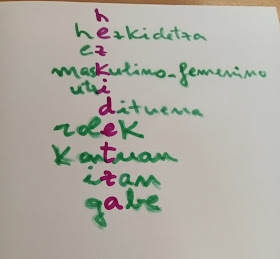 h
hezkidetza
ez
maskulino-femenino
utzi
dituena
rolek
Kontuan
izan
gabe